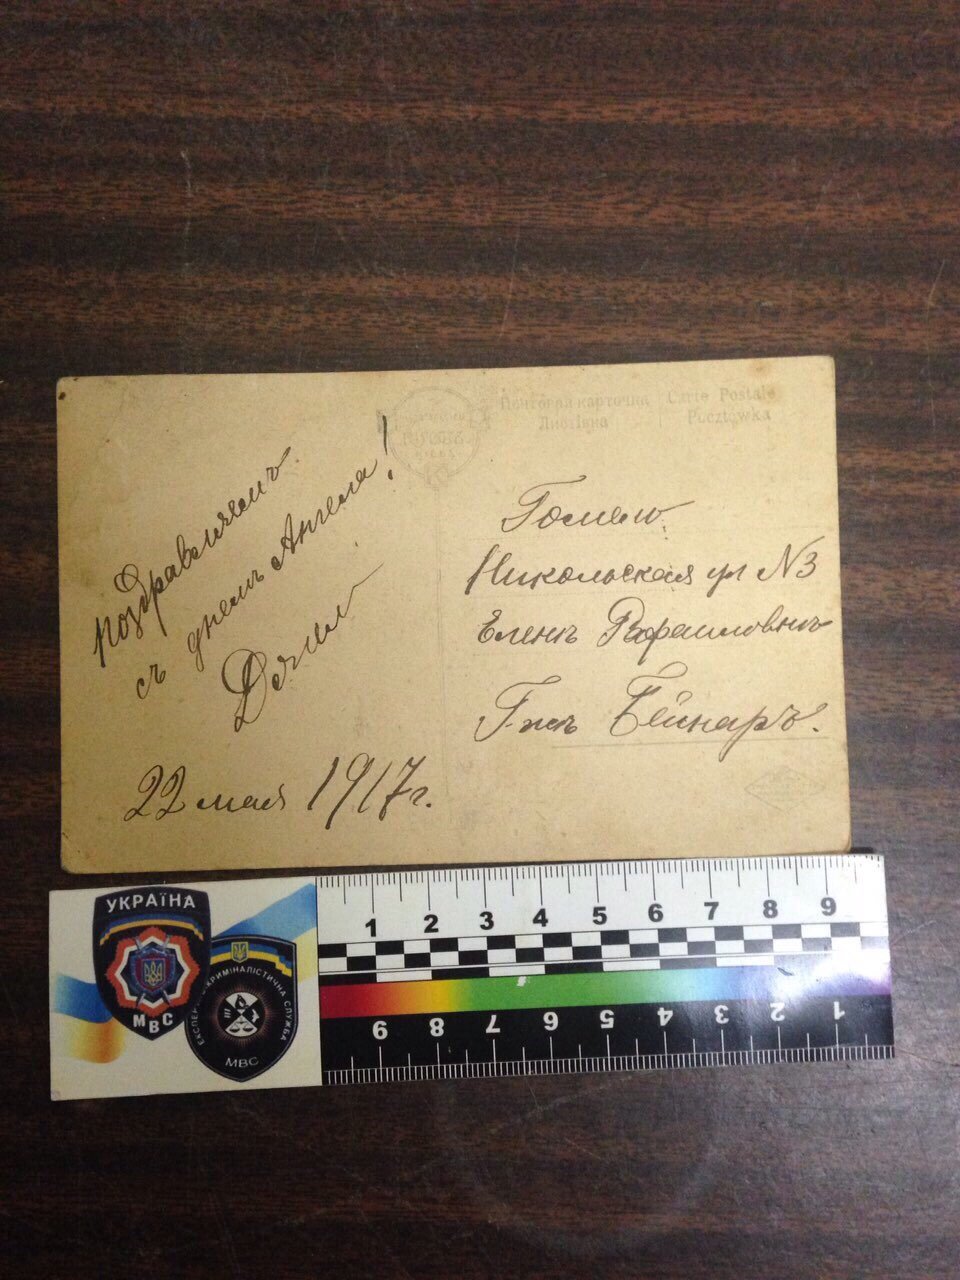 Почтовая карточка
Листівна
Carte Postale
Pocztówka
поздравляемъ
съ днемъ Ангела!
22 мая 1917 г.
Гомель
Никольская ул №3
Еленѣ Рафаиловнѣ
Г-жѣ Бейнаръ.
УКРАЇНА
МВС
КРИМІНАЛІСТИЧНА СЛУЖБА
МВС
1 2 3 4 5 6 7 8 9
9 8 7 6 5 4 3 2 1